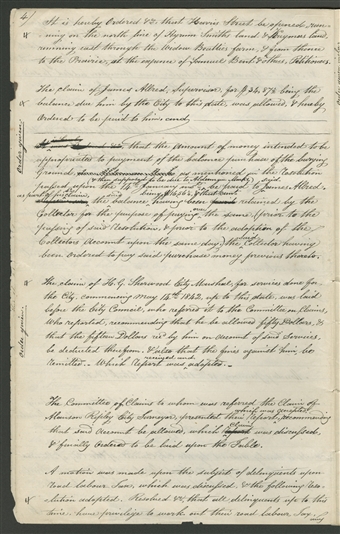 4
It is hereby Ordered &c. that Hewis Street be opened, run-
ning on the north line of Hyrum Smiths land & Kingmas land
running east through the Widow Beatties farm, & from thence
to the Prairie, at the expense of Samuel Bent, & others, Petitioners.
The claim of James Allred, Supervisor, for $24,87½ being the
balance due him by the City to this date, was allowed, & hereby
Ordered to be paid to him
Order given.
that the amount of money intended to be
appropriated to payment of the balance purchase of the burying
Ground, as mentioned in the Resolution
& then supposed to be due to Alderman Marks,
passed upon the 14th January be paid to James Allred,
as part of purchase,
the balance, having been retained by the
Collector for the purpose of paying the same, prior to the
passing of said Resolution, & prior to the adoption of the
Collectors Account upon the same day, the Collector having
been ordered to pay said purchase money previous thereto.
The claim of H. G. Sherwood City Marshal, for services done for
the City, commencing May 14th 1842, up to this date, was laid
before the City Council, who refered it to the Committee on Claims,
Who reported, recommending that he be allowed fifty Dollars, &
that the fifteen Dollars recd by him on account of said Services,
be deducted therefrom, & also that the fines against him, be
remitted. - Which Report was received and adopted. -
Order given.
The Committee of Claims to whom was referred the Claim of
Alanson Ripley City Surveyor, presented their Report, recommending
which was accepted,
that said account be allowed, which claim was discussed,
& finally Ordered to be laid upon the Table.
A motion was made upon the subject of delinquents upon
road labour Tax, which was discussed, & the following Reso-
lution adopted. Resolved &c. that all delinquents up to this
time, have privilege to work out their road labour Tax,